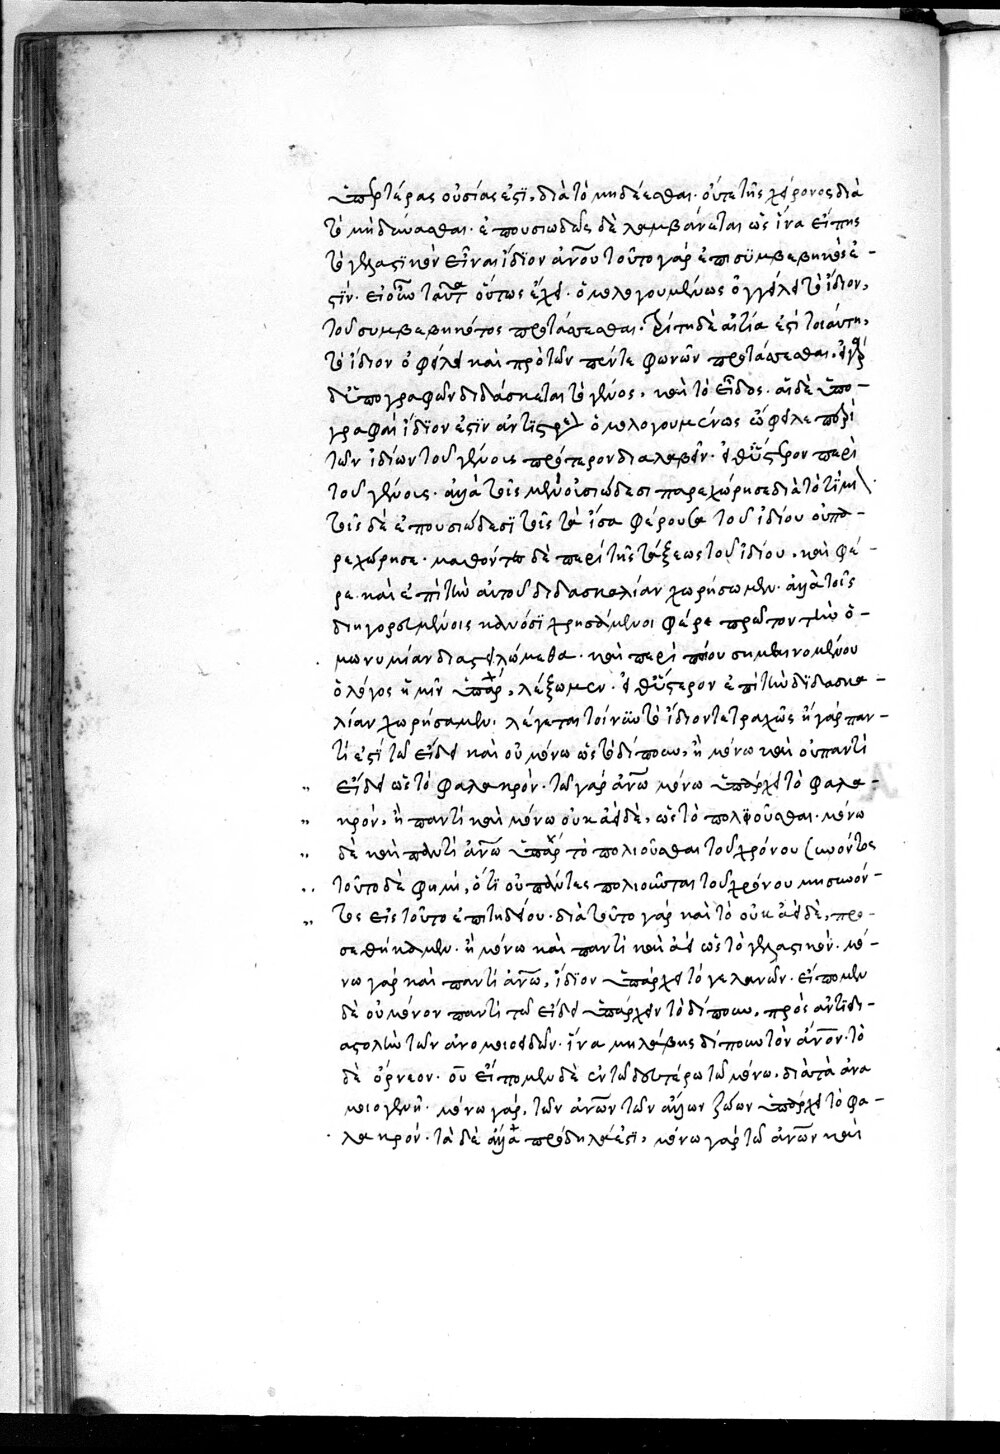 ὑπερτέρας οὐσίας ἐστὶ, διὰ τὸ μὴ δέεσθαι. οὔτε τῆς χείρονος διὰ
τὸ μὴ δύνασθαι. ἐπουσιωδῶς δὲ λαμβάνεται ὡς ἵνα εἴπης
τὸ γελαστικὸν εἶναι ἴδιον ἀνου τοῦτο γάρ ἐπισυμβεβηκός ἐ-
στίν. εἰ οὕτω ταῦτα οὕτως ἔχει. ὁμολογουμένως ὀφείλει τὸ ἴδιον,
τοῦ συμβεβηκότος προτάττεσθαι. τρίτη δὲ αἰτία ἐστὶ τοιαύτη,
τὸ ἴδιον ὀφείλει καὶ πρὸ τῶν πέντε φωνῶν προτάττεσθαι. εἰ γὰρ
δι' ὑπογραφῶν διδάσκεται τὸ γένος, καὶ τὸ εἶδος. αἱ δὲ ὑπο-
γραφαὶ ἴδιον ἐστὶν ὁμολογουμένως ὤφειλε περὶ
τῶν ἰδίων τοῦ γένους πρότερον διαλαβεῖν. εἶθ' ὕστερον περὶ
τοῦ γένους. ἀλλὰ τοῖς μὲν οὐσιώδεσι παρεχώρησε διὰ τὸ τίμιον.
τοῖς δὲ ἐπουσιώδεσι τοῖς τὰ ἴσα φέρουσι τοῦ ἰδίου οὐ πα-
ρεχώρησε. μαθόντες δὲ περὶ τῆς τάξεως τοῦ ἰδίου, καὶ φέ-
ρε καὶ ἐπὶ τὴν αὐτοῦ διδασκαλίαν χωρήσωμεν. ἀλλὰ τοῖς
διηγορευμένοις κανόσι χρησάμενοι φέρε πρῶτον τὴν ὁ-
μωνυμίαν διαστειλώμεθα. καὶ περὶ ποίου σημαινομένου
ὁ λόγος ἡμῖν ὑπάρχει, λέξωμεν. εἶθ' ὕστερον ἐπὶ τὴν διδασκα-
λίαν χωρήσωμεν. λέγεται τοίνυν τὸ ἴδιον τετραχῶς ἢ γάρ παν-
τί ἐστι τῷ εἴδει καὶ οὐ μόνω ὡς τὸ δίπουν, ἢ μόνω καὶ οὐ παντὶ
εἴδει ὡς τὸ φαλακρόν. τῷ γάρ ἀνω μόνω ὑπάρχει τὸ φαλα-
κρόν, ἢ παντὶ καὶ μόνω οὐκ ἀεὶ δὲ, ὡς τὸ πολιοῦσθαι. μόνω
δὲ καὶ παντὶ ἀνω ὑπάρχει τὸ πολιοῦσθαι τοῦ χρόνου συνόντος
τοῦτο δὲ φημὶ, ὅτι οὐ πάντες πολιοῦνται τοῦ χρόνου μὴ συνόν-
τος εἰς τοῦτο ἐπιτηδείου. διὰ τοῦτο γάρ καὶ τὸ οὐκ ἀεὶ δὲ, προ-
σεθήκαμεν. ἢ μόνω καὶ παντὶ καὶ ἀεὶ ὡς τὸ γελαστικόν. μό-
νω γάρ καὶ παντὶ ἀνω, ἴδιον ὑπάρχει τὸ γελανῶν. εἴπομεν
δὲ οὐ μόνον παντὶ τῷ εἴδει ὑπάρχειν τὸ δίπουν, πρὸς ἀντιδι-
αστολὴν τῶν ἀνομοιοειδῶν. ἵνα μὴ λάβης δίπουν τὸν ἀνον. τὸ
δὲ ὄρνεον. οὐ εἴπομεν δὲ ἐν τῷ δευτέρω τῷ μόνω, διὰ τὰ ἀνο
μοιογενῆ. μόνω γάρ, τῶν ἀνων τῶν ἄλλων ζώων ὑπάρχει τὸ φα-
λακρόν. τὰ δὲ ἄλλα πρόδηλά ἐστι, μόνω γάρ τῷ ἀνων καὶ